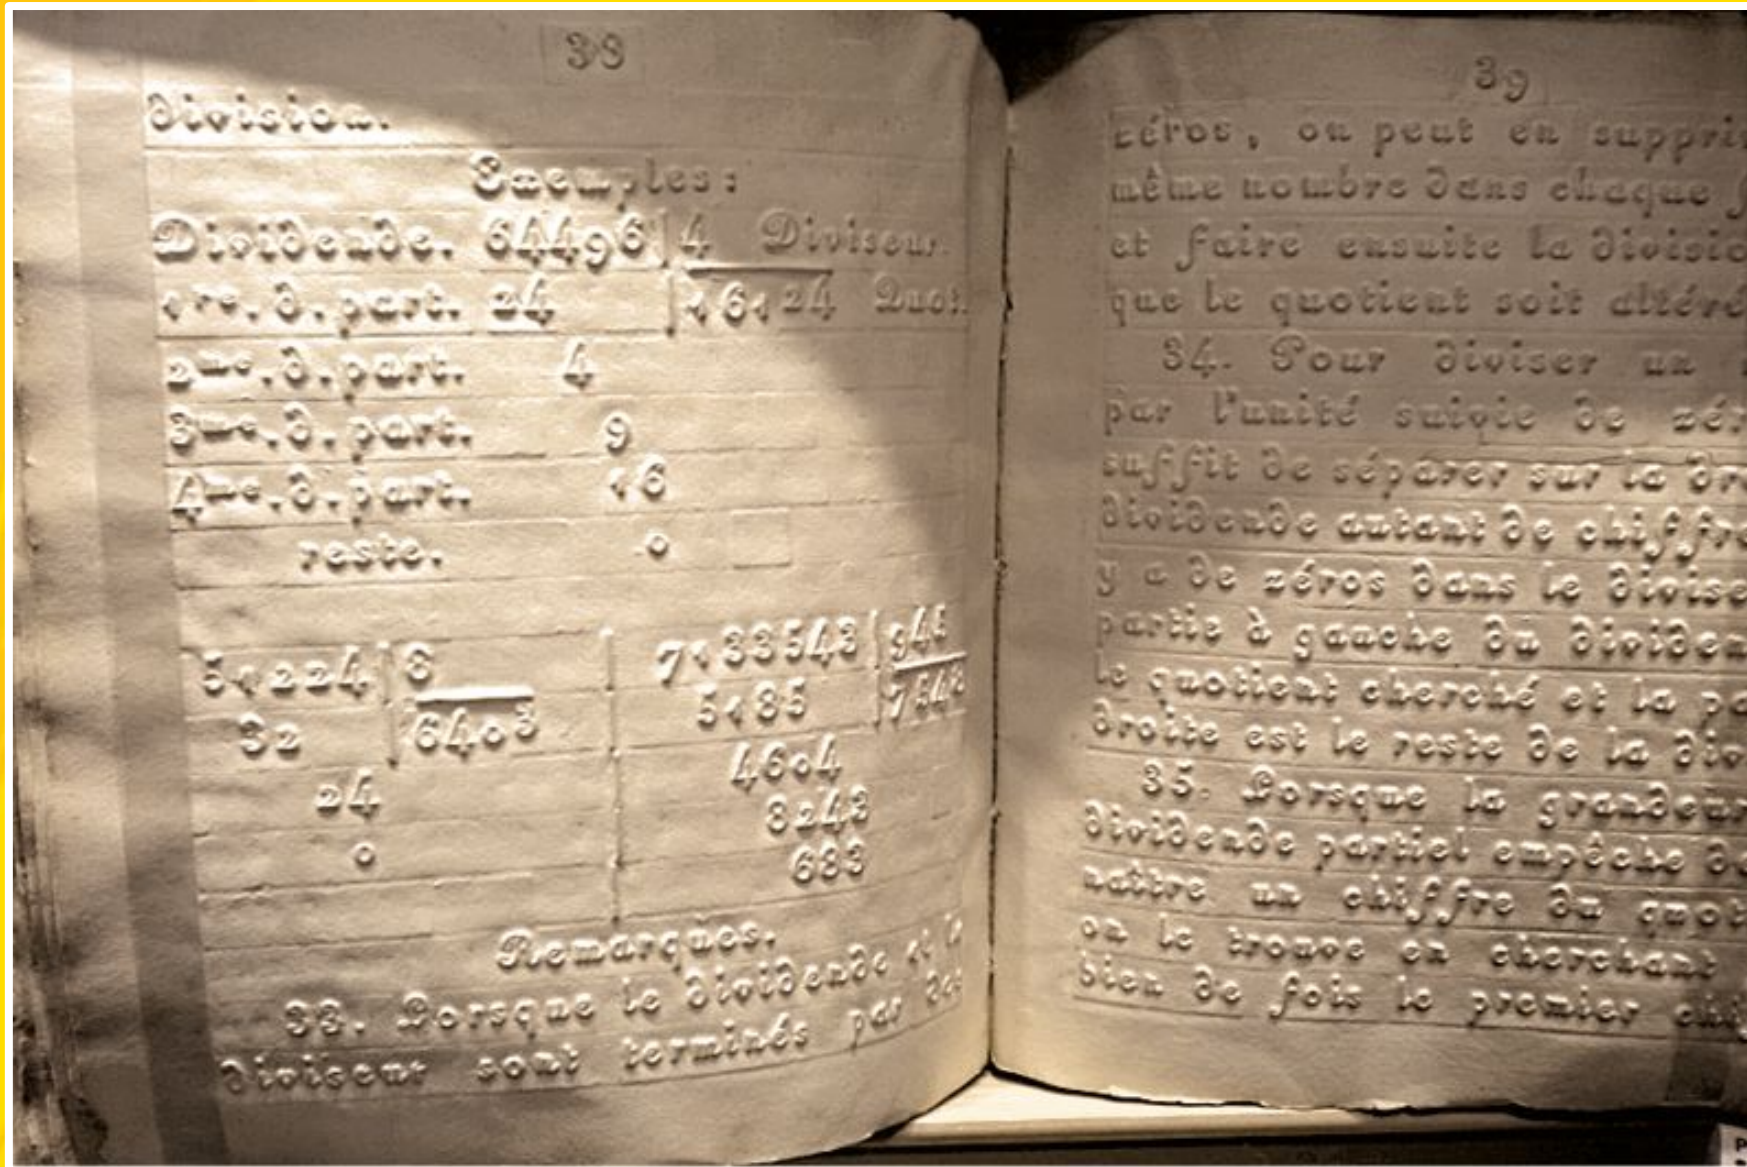 38
division.
Exemples:
Dividende. 64496 4 Diviseur.
1re. d. part. 24 16124 Quot.
2me. d. part. 4
3me. d. part. 9
4me. d. part. 16
reste. 0
51224 8
32 6403
24
0
7133543 945
5185 7548
4604
8243
683
Remarques.
33. Lorsque le dividende et le
diviseur sont terminés par des
39
zéros, on peut en suppri
même nombre dans chaque f
et faire ensuite la divisio
que le quotient soit altéré
34. Pour diviser un
par l'unité suivie de zér
suffit de séparer sur la dro
dividende autant de chiffre
y a de zéros dans le divise
partie à gauche du dividen
le quotient cherché et la pa
droite est le reste de la div
35. Lorsque la grandeur
dividende partiel empêche de
naître un chiffre du quot
on le trouve en cherchant
bien de fois le premier chi